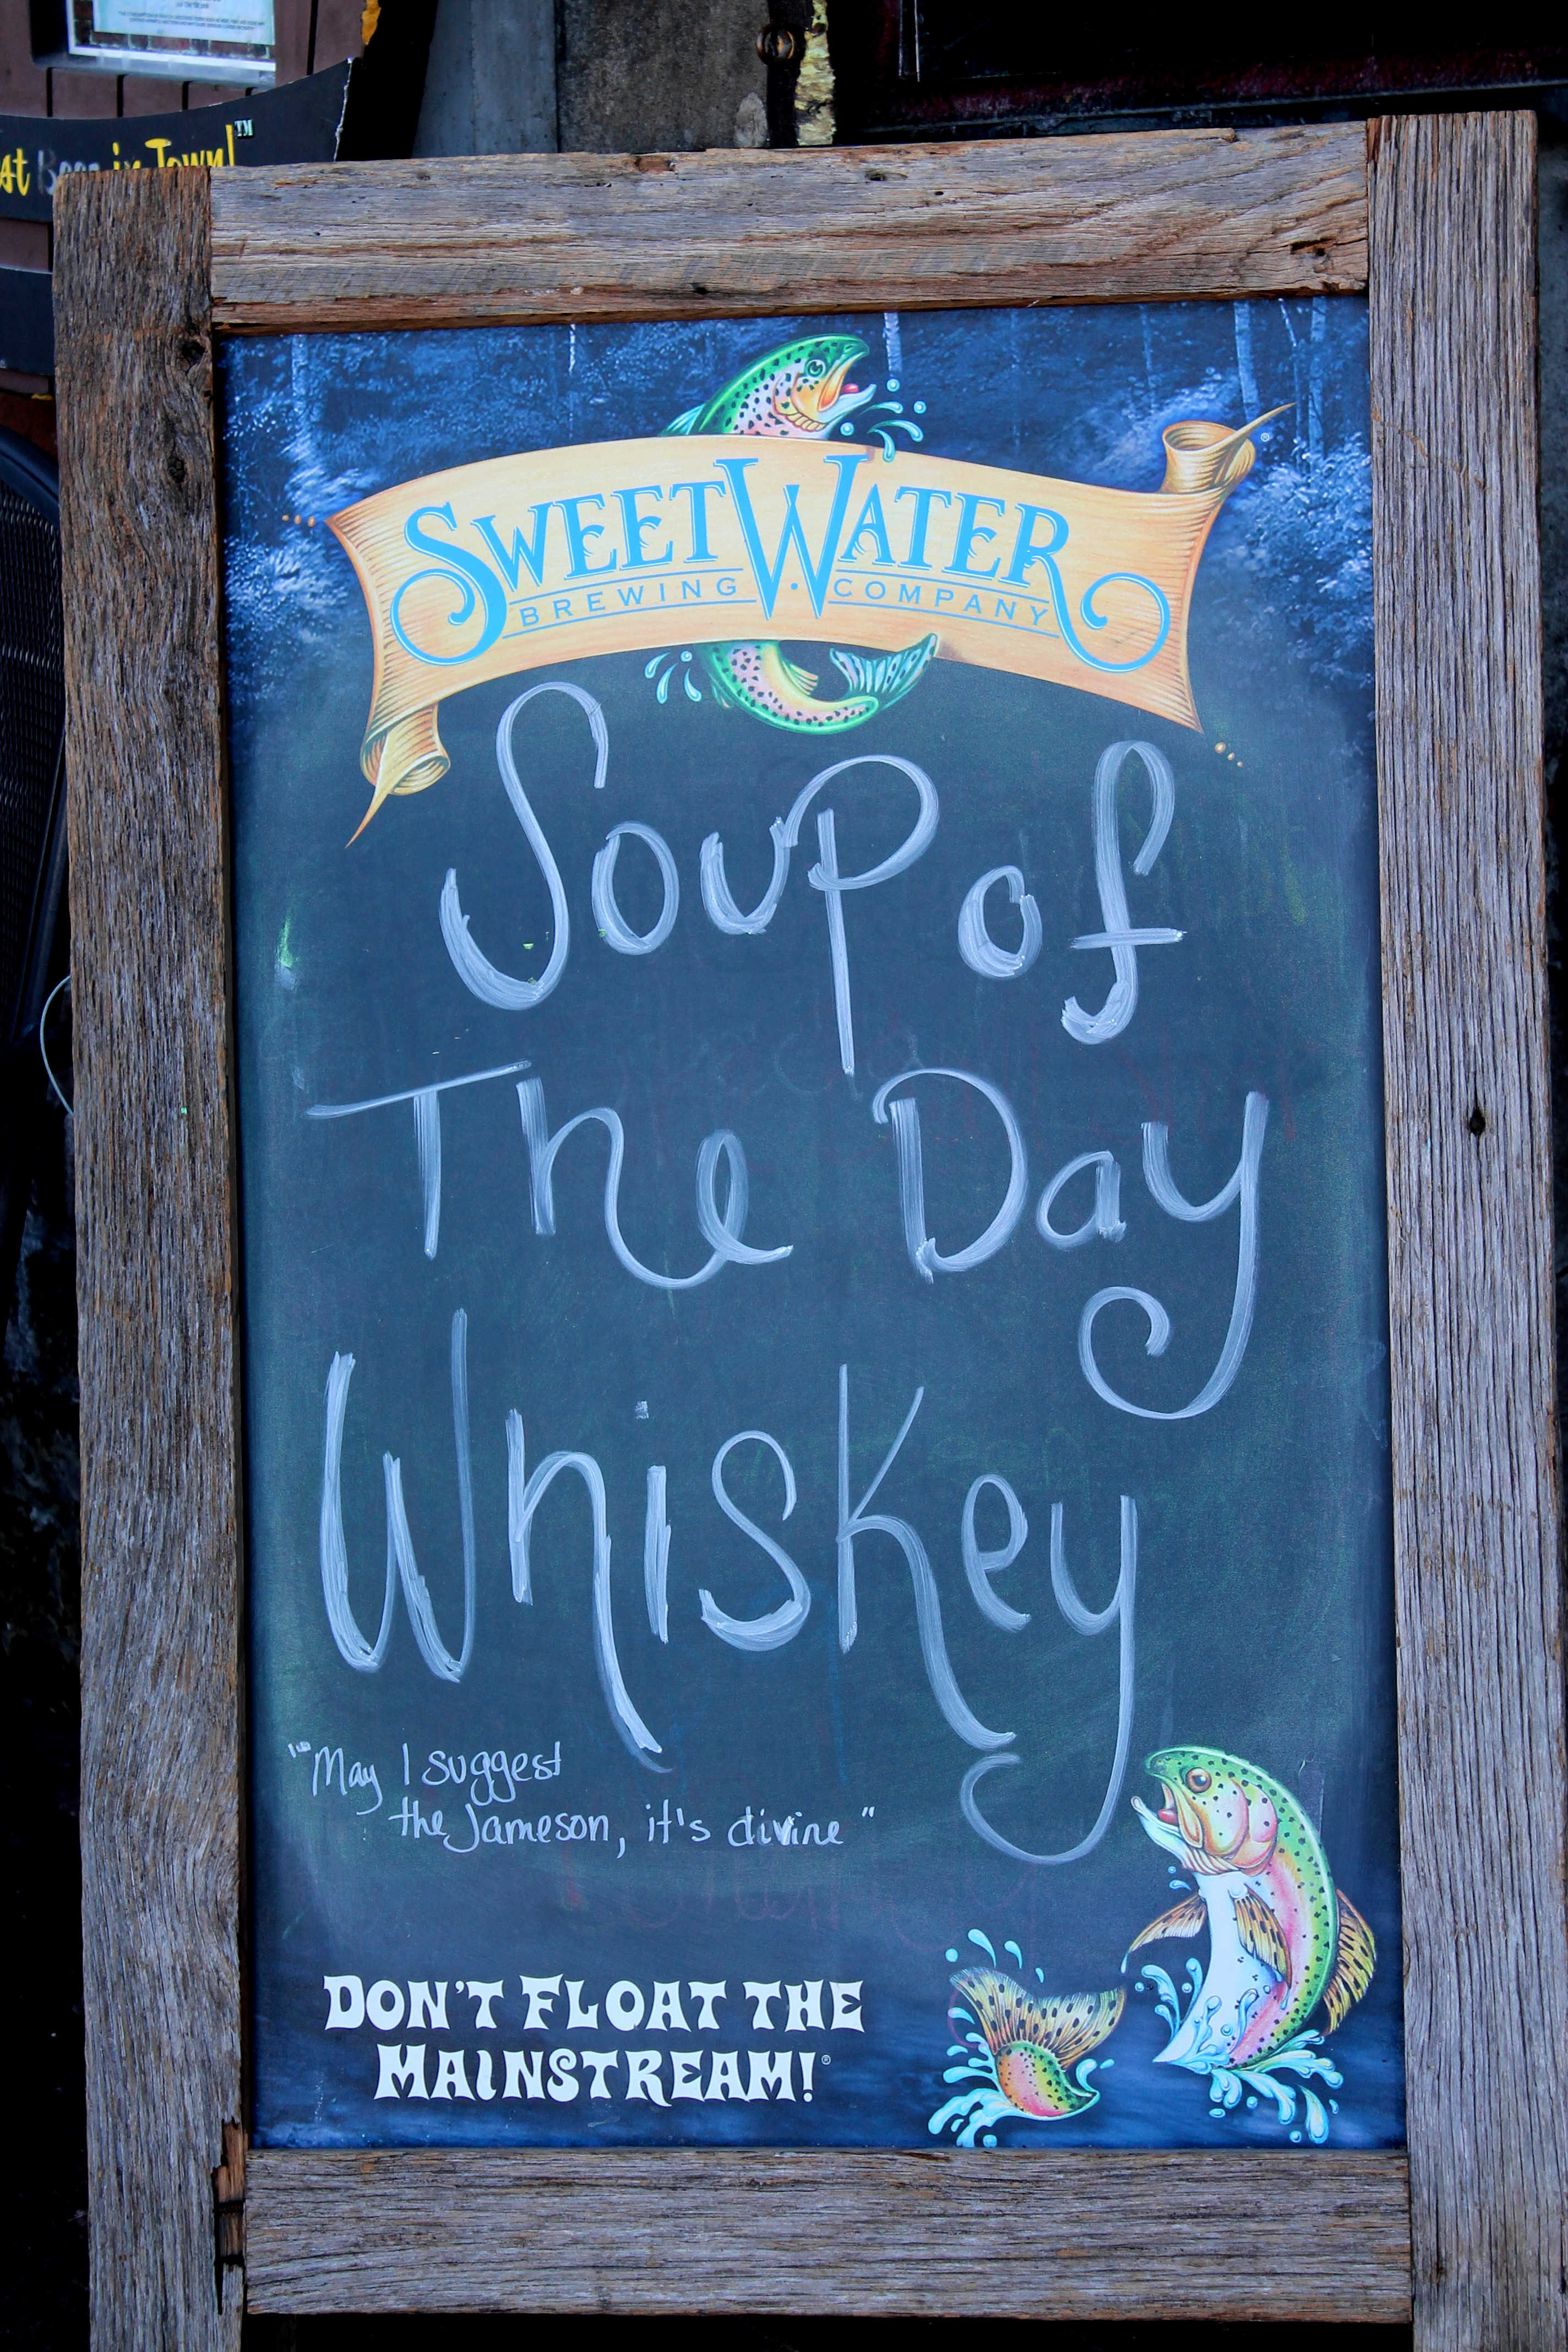 in Town!™
SWEETWATER
BREWING COMPANY
Soup of
The Day
Whiskey
"May I suggest
the Jameson, it's divine"
DON'T FLOAT THE
MAINSTREAM!®